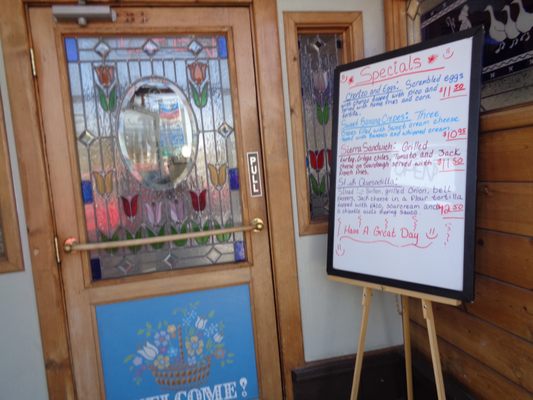 Specials
Chorizo and Eggs: Scrambled eggs
with chorizo topped with pico and
served with home fries and corn
tortilla $11.50
Sweet Banana Crepes: Three
Crepes filled with sweet cream cheese
with bananas and whipped cream
$10.95
Sierra Sandwich: Grilled
turkey, Ortega chiles, Tomato and Jack
cheese on Sourdough served with
French fries. $11.50
Steak Quesadilla:
Sliced grilled Onion, bell
Jack cheese in a Flour Tortilla
topped with pico, sourcream and
a chipotle aioli sauce $12.50
Have A Great Day
PULL
WELCOME!